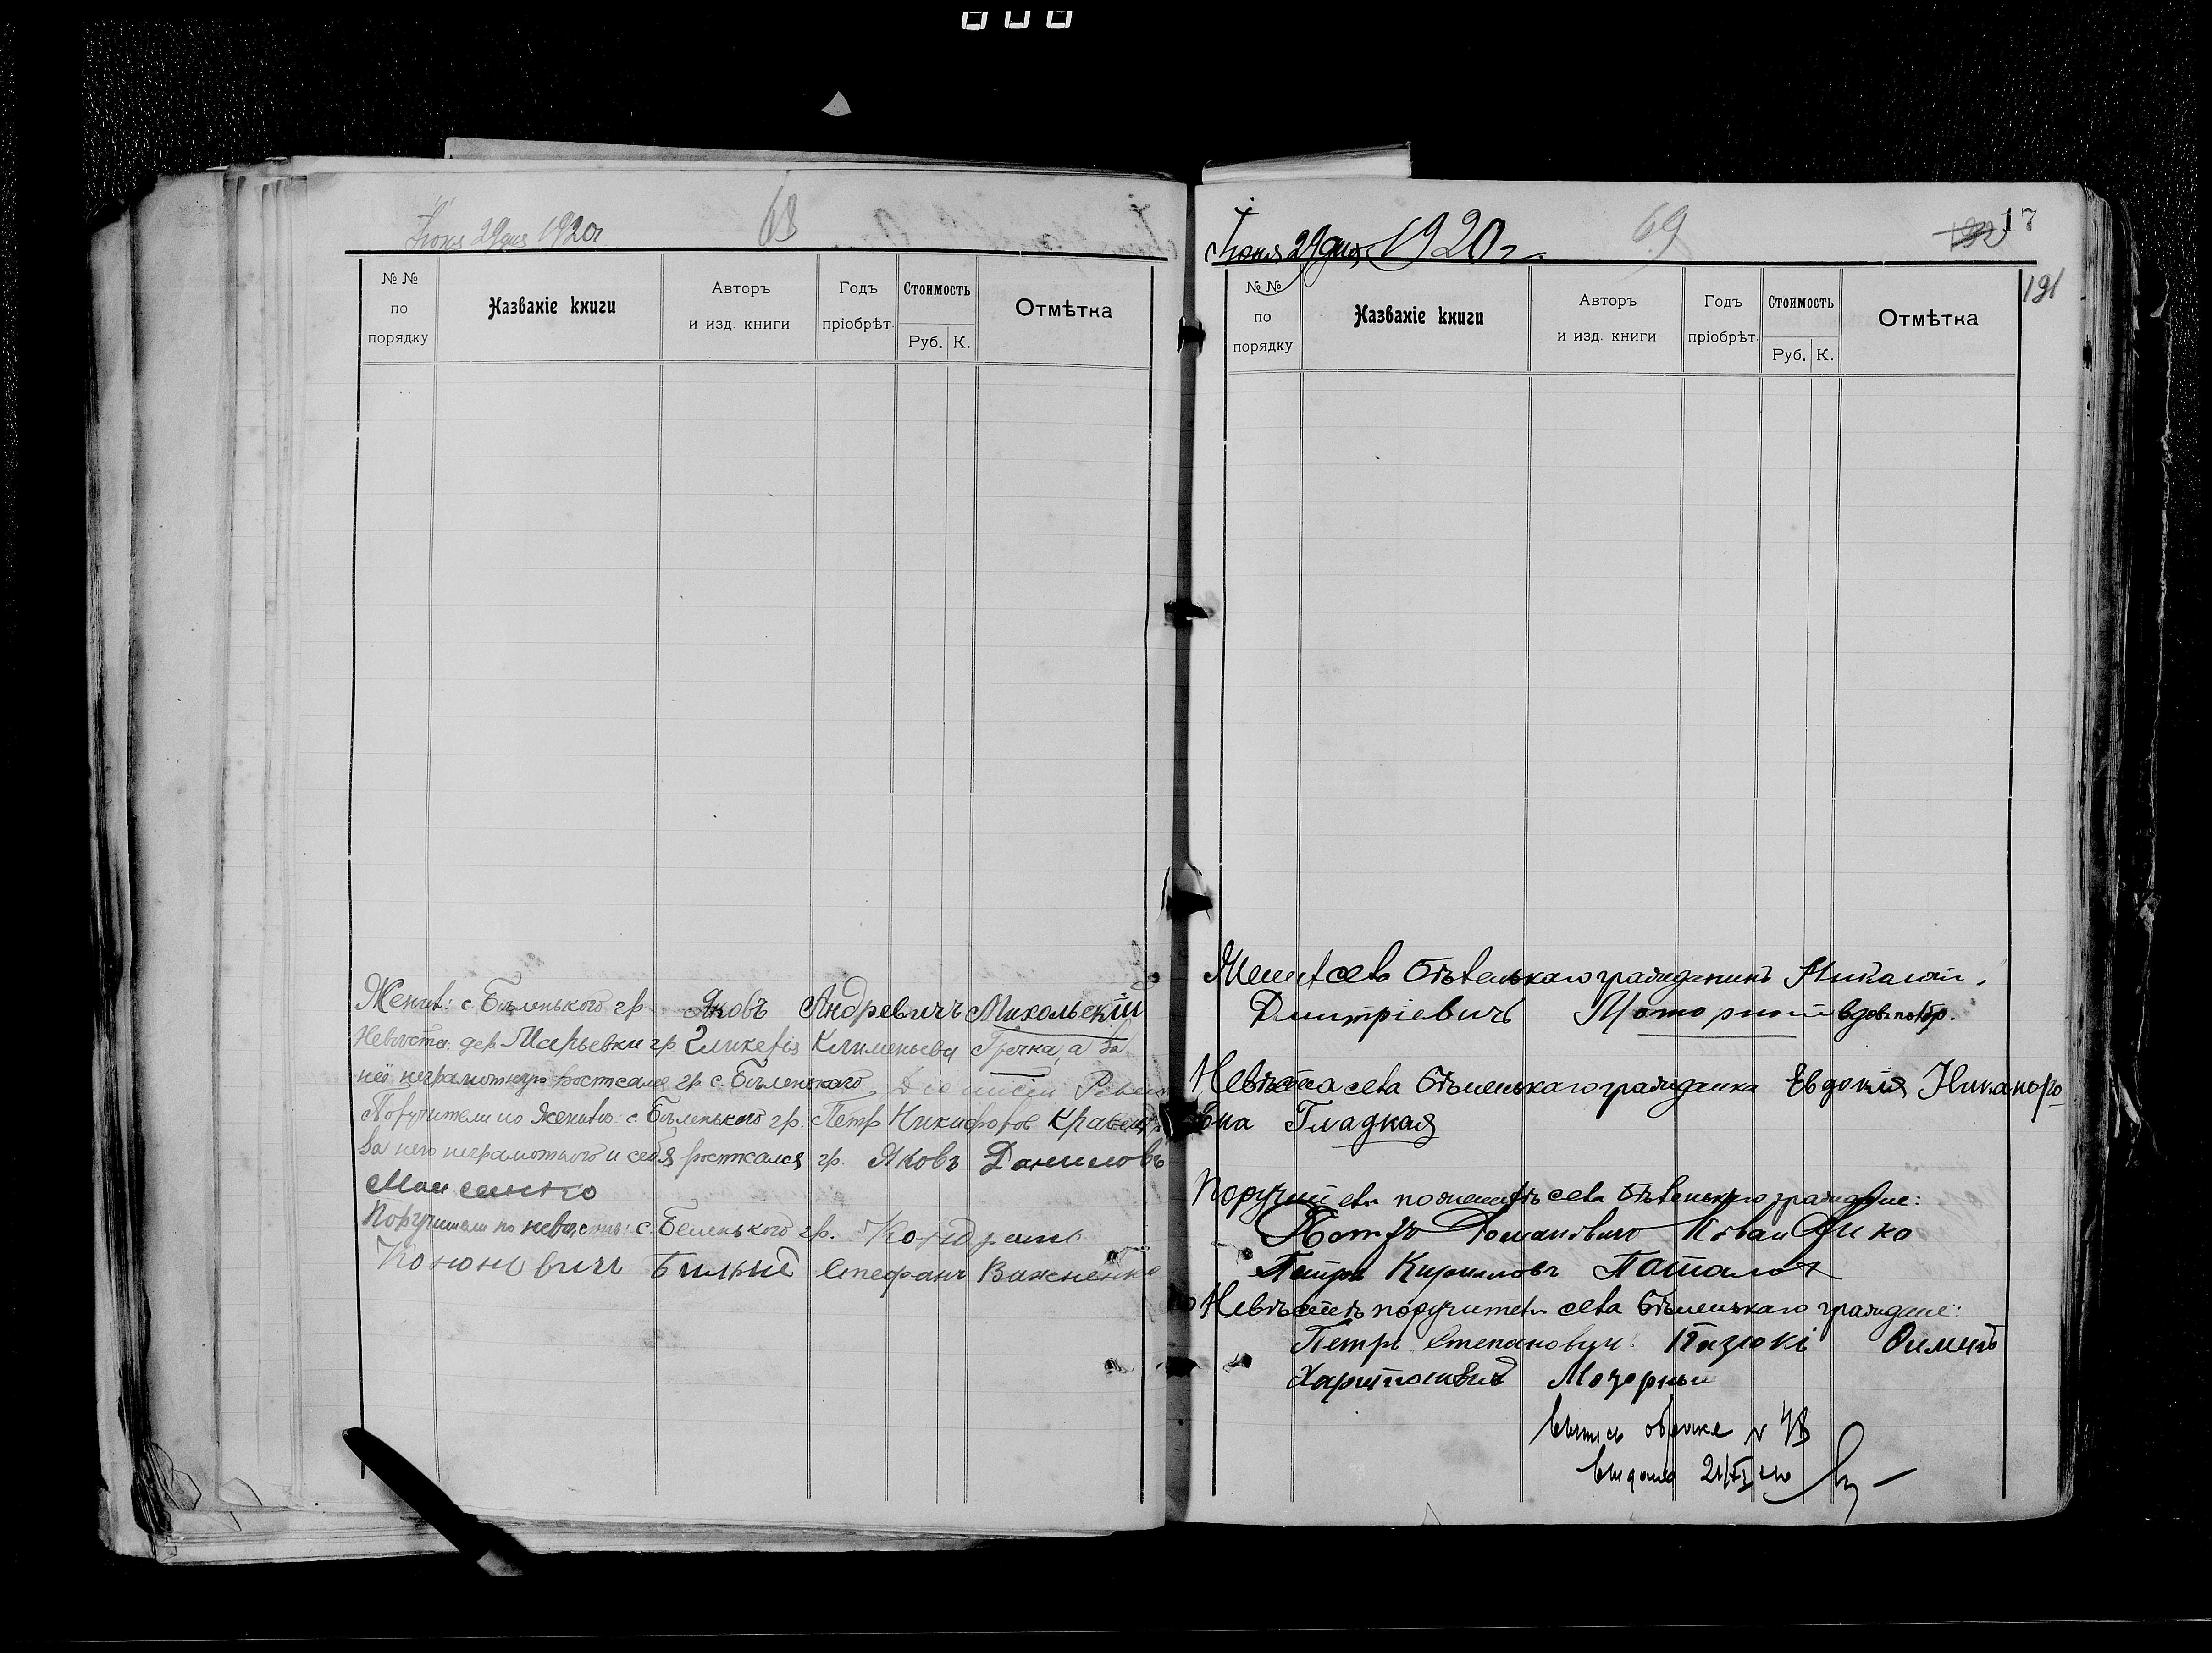 Іюня 29 дня 1920 г
68
№ №
по
порядку
Названіе книги
Авторъ
и изд. книги
Годъ
пріобрѣт.
Стоимость
Руб. К.
Отмѣтка
Женихъ: с. Бѣленького гр. Яковъ Андреевичъ Микольскій
Невѣста: дер. Марьевки гр. Гликерія Клименьева Гречка, а за
неё неграмотную росписался гр. с. Бѣленького
Поручители по жениху: с. Бѣленького гр. Петр Никифоров Кравец
За него неграмотного и себя росписался гр. Яковъ Даниловъ
Моисеенко
Поручители по невѣстѣ: с. Беленького гр. Кондратъ
Бильый Стефанъ Важненко
Іюня 29 дня 1920 г.
69
17
191
№ №
по
порядку
Названіе книги
Авторъ
и изд. книги
Годъ
пріобрѣт.
Стоимость
Руб. К.
Отмѣтка
Женихъ села Бѣленькаго гражданинъ Николай
Дмитріевичъ вдов.
Невѣста села Бѣленькаго гражданка Евдокія Никаноро
вна Гладкая
Поручители по женихѣ села Бѣленького граждане:
Романовичъ
Петръ Кириловъ Паталах
Невѣстѣ поручители села Бѣленькаго граждане:
Петръ Степановичъ
Харитоновичъ Мозорный
выдана